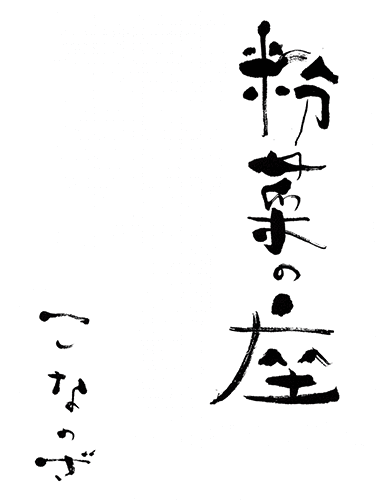 粉菜の座
こなのざ